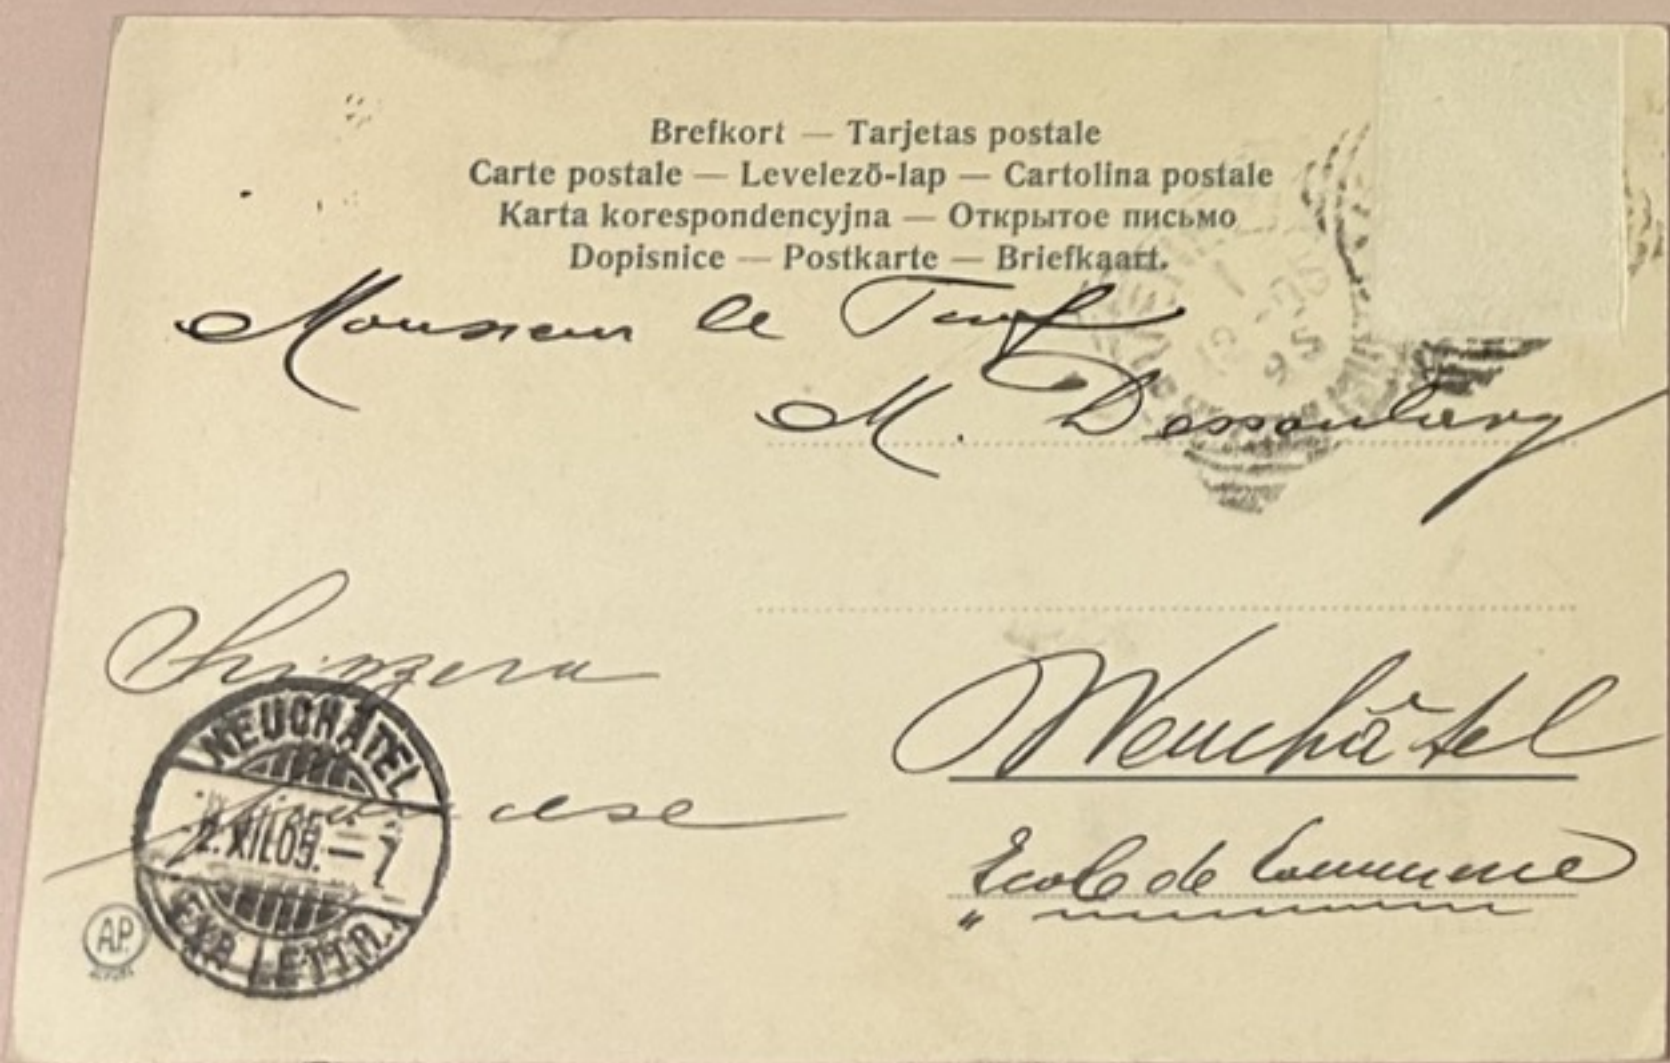 Brefkort — Tarjetas postale
Carte postale — Levelező-lap — Cartolina postale
Karta korespondencyjna — Открытое письмо
Dopisnice — Postkarte — Briefkaart.
Monsieur le Prof
M.
Svizzera
Neuchâtel
Ecole de Commerce
NEUCHÂTEL
2.XII.05.–7
LETTR.
A.P.